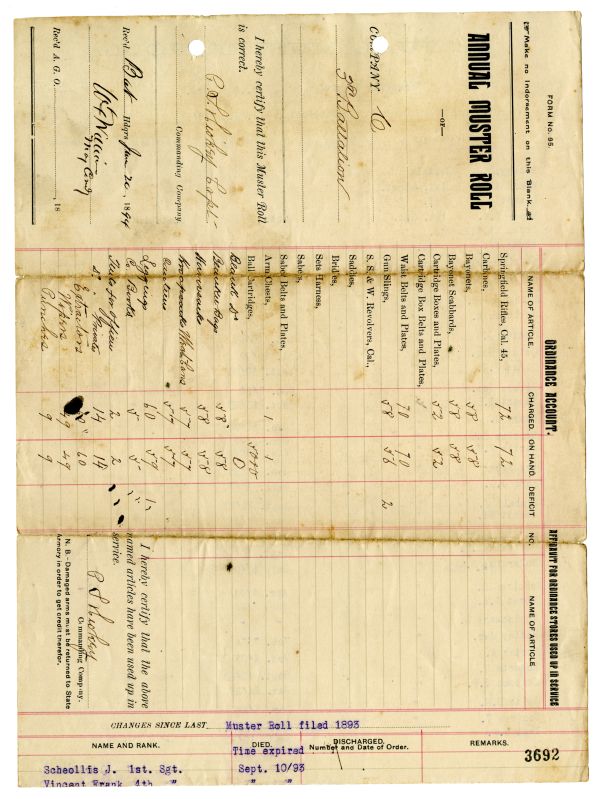 FORM No. 95.
Make no Indorsement on this Blank.
ANNUAL MUSTER ROLL
—OF—
COMPANY C
3rd Battalion
I hereby certify that this Muster Roll
is correct.
Capt.
Commanding Company.
Rec'd Bat Hdqrs Jan 20, 1894
Maj Comdg
Rec'd A. G. O. 18
ORDNANCE ACCOUNT.
NAME OF ARTICLE. CHARGED. ON HAND. DEFICIT
Springfield Rifles, Cal. 45, 72 72
Carbines,
Bayonets, 58 58
Bayonet Scabbards, 58 58
Cartridge Boxes and Plates, 52 52
Cartridge Box Belts and Plates,
Waist Belts and Plates, 70 70
Gun Slings, 58 56 2
S. S. & W. Revolvers, Cal.,
Saddles,
Bridles,
Sets Harness,
Sabers,
Saber Belts and Plates,
Arm Chests, 1 1
Ball Cartridges,
Blank Do 0
Blanket Bags 58 58
Haversacks 58 58
Knapsacks 57 57
Canteens 57 57
Leggings 60 59 1
Co Books 5 5
2 2
14 14
Extractors 60
Wipers 49 49
Punches 9 9
AFFIDAVIT FOR ORDNANCE STORES USED UP IN SERVICE
NO. NAME OF ARTICLE
I hereby certify that the above
named articles have been used up in
service.
Commanding Company.
N. B.-Damaged arms must be returned to State
Armory in order to get credit therefor.
CHANGES SINCE LAST Muster Roll filed 1893
NAME AND RANK. DIED. DISCHARGED. Number and Date of Order. REMARKS.
Time expired
3692
Scheollis J. 1st. Sgt. Sept. 10/93
Vincent Frank 4th " " "